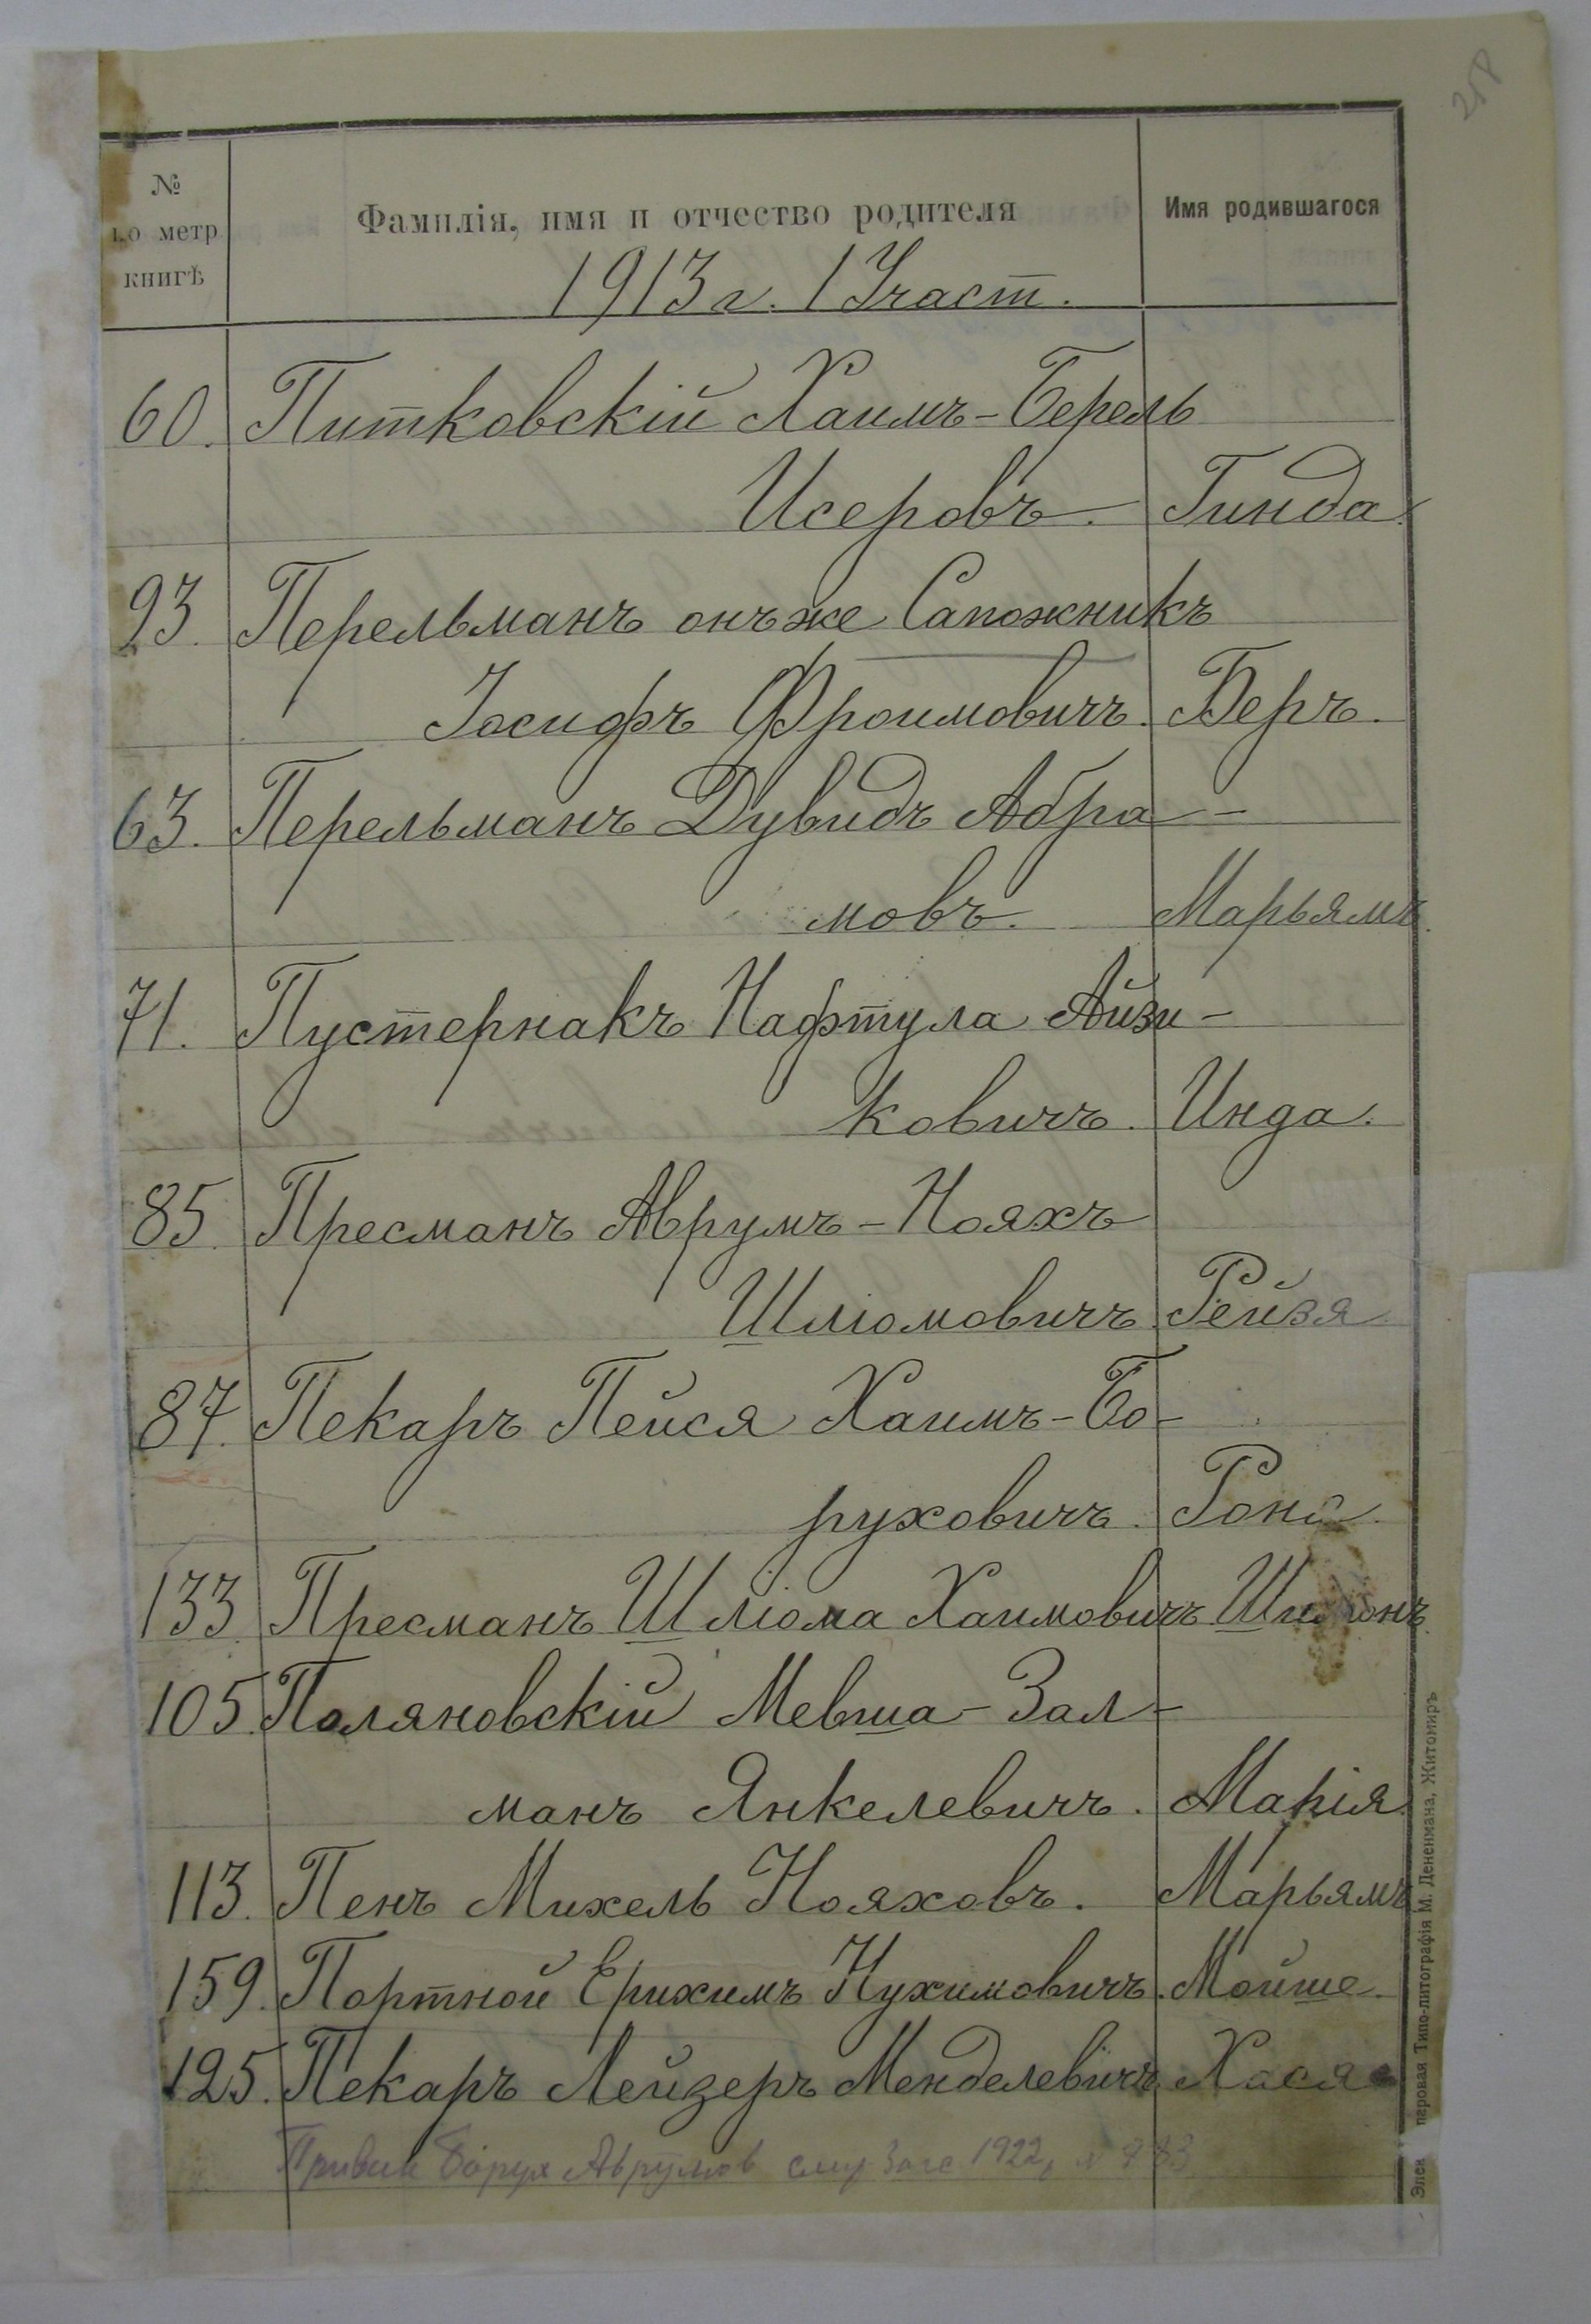 258
№
по метр
книгѣ
Фамилія, имя и отчество родителя
Имя родившагося
1913 г. 1 Участ.
60. Питковскій Хаимъ-Берель
Исеровъ. Гинда.
93. Перельманъ онъ же Сапожникъ
Іосифъ Фроимовичъ. Беръ.
63. Перельманъ Дувидъ Абра-
мовъ. Марьямъ.
71. Пустернакъ Нафтула Айзи-
ковичъ. Инда.
85. Пресманъ Аврумъ-Нояхъ
Шліомовичъ Рейзя.
87. Пекаръ Пейся Хаимъ-Бо-
руховичъ. Роня.
133. Пресманъ Шліома Хаимовичъ
105. Поляновскій Мевша-Зал-
манъ Янкелевичъ. Марія.
113. Пенъ Михель Нояховъ. Марьямъ
159. Портной Ерихимъ Нухимовичъ. Мойше.
125. Пекаръ Лейзеръ Менделевичъ Хася
Борух Аврумов 1922
паровая Типо-литографія М. Дененмана, Житомиръ